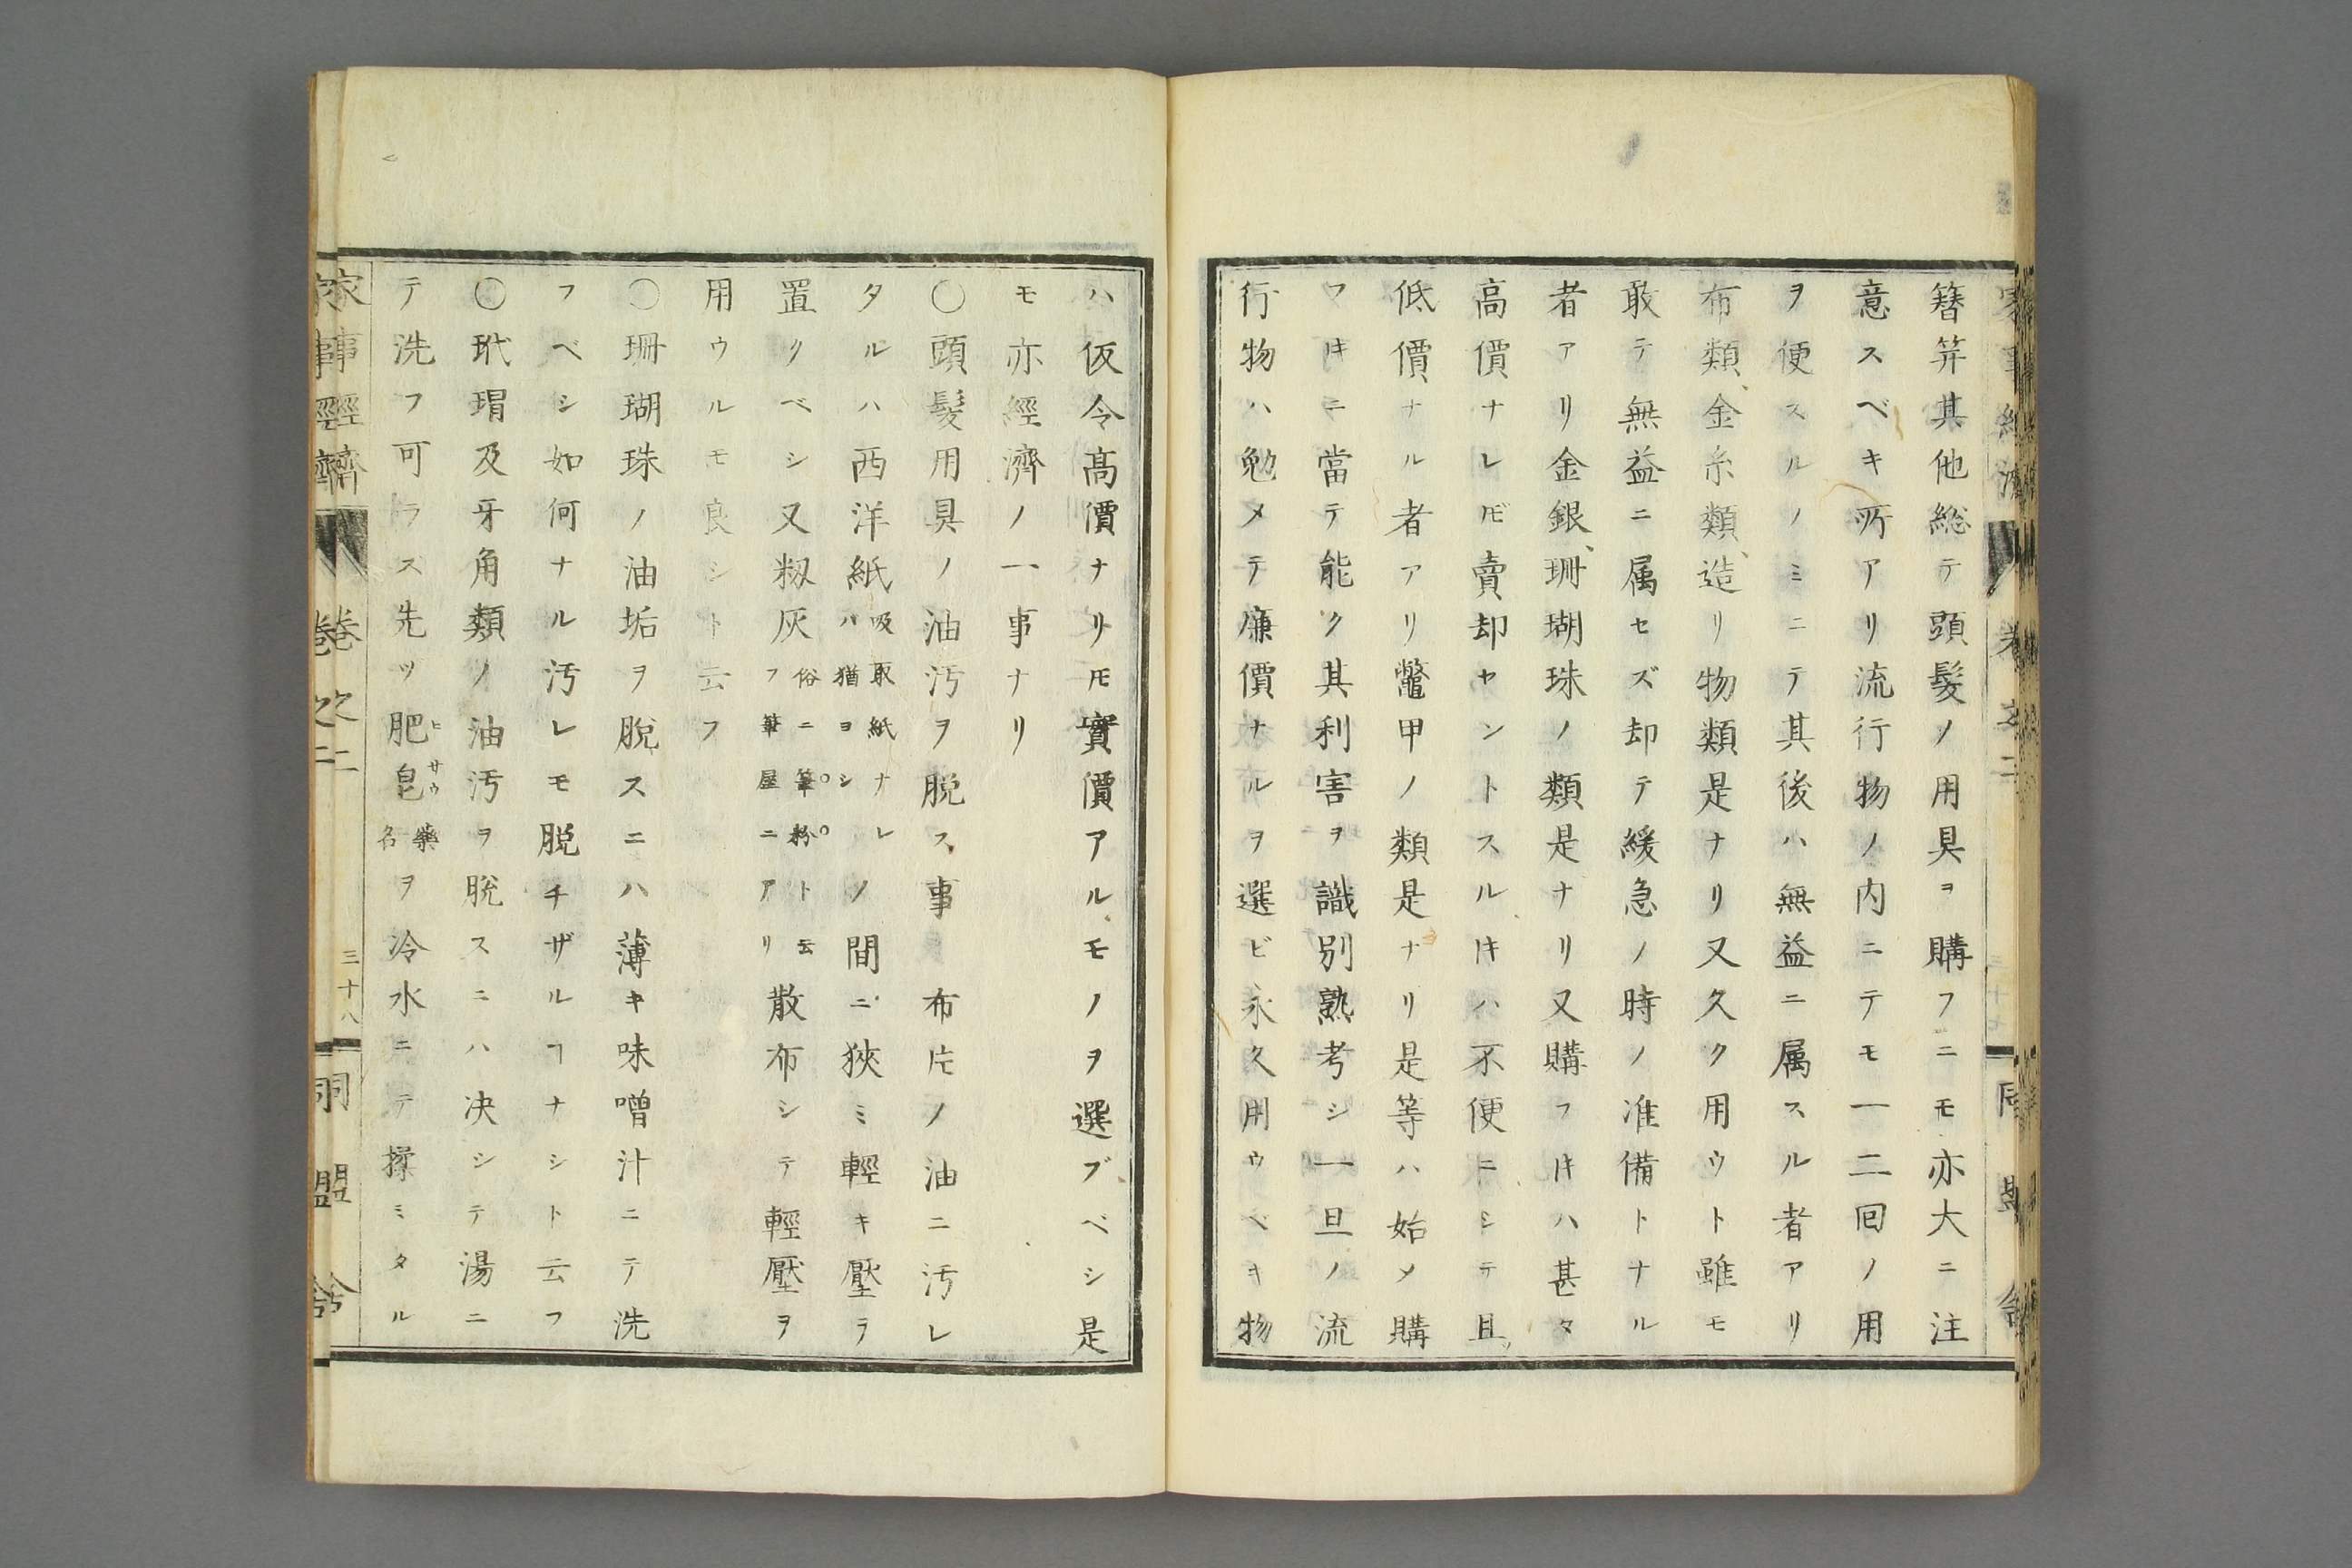 簪笄其他総テ頭髮ノ用具ヲ購フニモ亦大ニ注
意スベキ所アリ流行物ノ内ニテモ一二回ノ用
ヲ便スルノミニテ其後ハ無益ニ属スル者アリ
布類、金糸類、造リ物類是ナリ又久ク用ウト雖モ
敢テ無益ニ属セズ却テ緩急ノ時ノ准備トナル
者アリ金銀、珊瑚珠ノ類是ナリ又購フ𪜈ハ甚タ
高價ナレ𪜈賣却ヤントスル𪜈ハ不便ニシテ且、
低價ナル者アリ鼈甲ノ類是ナリ是等ハ始メ購
フ𪜈ニ當テ能ク其利害ヲ識別熟考シ一旦ノ流
行物ハ勉メテ廉價ナルヲ選ビ永久用ウベキ物
ハ仮令高價ナリ𪜈實價アルモノヲ選ブベシ是
モ亦經濟ノ一事ナリ
〇頭髮用具ノ油汚ヲ脱ス事 布片ノ油ニ汚レ
タルハ西洋紙吸取紙ナレハ猶ヨシノ間ニ狹ミ輕キ壓ヲ
置クベシ又籾灰俗ニ筆粉ト云フ筆屋ニアリ散布シテ輕壓ヲ
用ウルモ良シト云フ
〇珊瑚珠ノ油垢ヲ脱スニハ薄キ味噌汁ニテ洗
フベシ如何ナル汚レモ脱チザルヿナシト云フ
〇玳瑁及牙角類ノ油汚ヲ脱スニハ决シテ湯ニ
テ洗フ可ラズ先ツ肥皂ヒサウ藥名ヲ冷水ニテ揉ミタル
家事經濟 卷之二 三十八 同盟舎